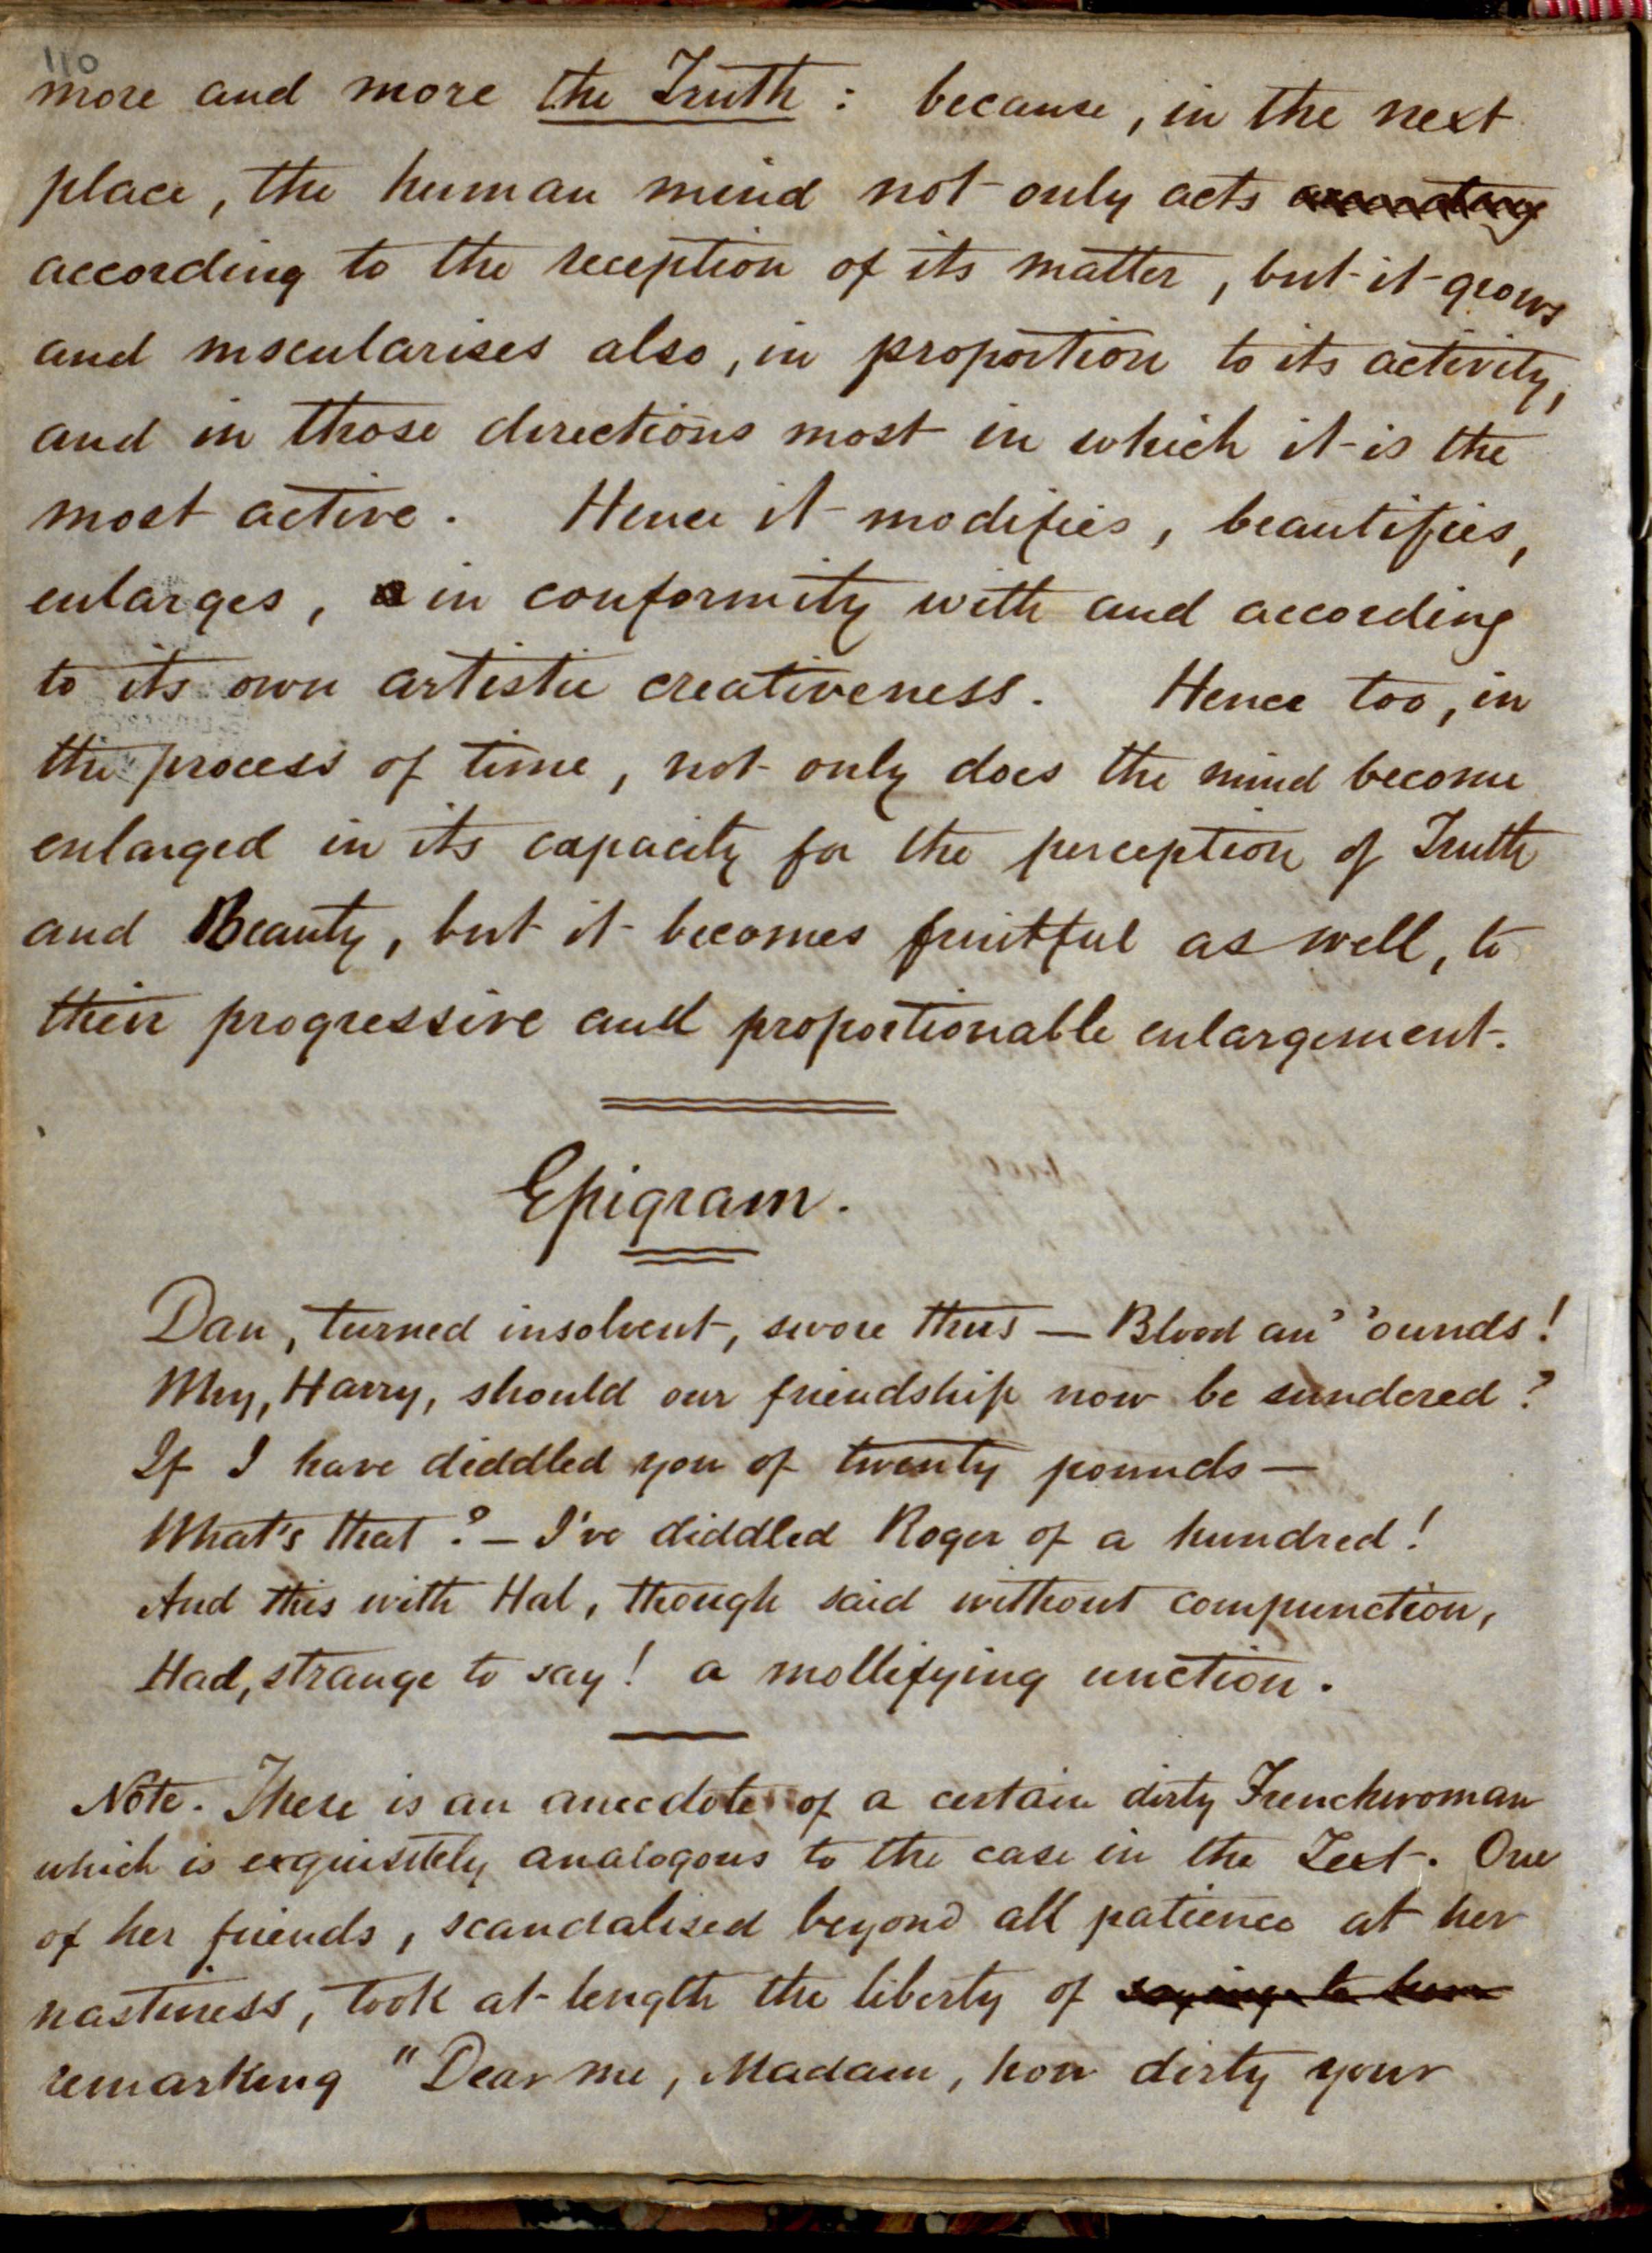 110
more and more the Truth : because, in the next
place, the human mind not only acts according
according to the reception of its matter, but it grows
and mscularises also, in proportion to its activity,
and in those directions most in which it is the
most active. Hence it modifies, beautifies,
enlarges, in conformity with and according
to its own artistic creativeness. Hence too, in
the process of time, not only does the mind become
enlarged in its capacity for the perception of Truth
and Beauty, but it becomes fruitful as well, to
their progressive and proportionable enlargement.
Epigram.
Dan, turned insolvent, swore thus — Blood an' 'ounds!
Why, Harry, should our friendship now be sundered?
If I have diddled you of twenty pounds —
What's that? — I've diddled Roger of a hundred!
And this with Hal, though said without compunction,
Had, strange to say! a mollifying unction.
Note. There is an anecdote of a certain dirty Frenchwoman
which is exquisitely analogous to the case in the Text. One
of her friends, scandalised beyond all patience at her
nastiness, took at length the liberty of saying to her
remarking "Dear me, Madam, how dirty your